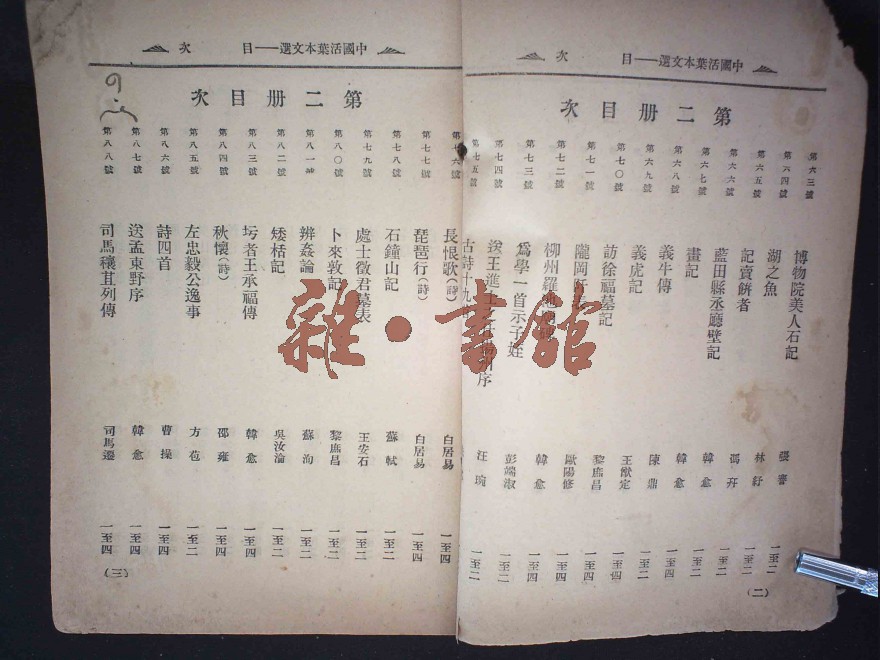 中國活葉本文選——目 次
第二册目次
第六三號 博物院美人石記 張謇 一至二
第六四號 湖之魚 林紓 一至二
第六五號 記賣餅者 馮幵 一至二
第六六號 藍田縣丞廳壁記 韓愈 一至二
第六七號 畫記 韓愈 一至二
第六八號 義牛傳 陳鼎 一至二
第六九號 義虎記 王猷定 一至四
第七〇號 訪徐福墓記 黎庶昌 一至四
第七一號 隴岡 歐陽修 一至四
第七二號 柳州羅 韓愈 一至四
第七三號 爲學一首示子姪 彭端淑 一至二
第七四號 送王進士之任揚州序 汪琬 一至二
第七五號 古詩十九
(二)
中國活葉本文選——目 次
第二册目次
第七六號 長恨歌(詩) 白居易 一至四
第七七號 琵琶行(詩) 白居易 一至四
第七八號 石鐘山記 蘇軾 一至二
第七九號 處士徵君墓表 王安石 一至二
第八〇號 卜來敦記 黎庶昌 一至二
第八一號 辨姦論 蘇洵 一至二
第八二號 矮栝記 吳汝淪 一至二
第八三號 圬者王承福傳 韓愈 一至四
第八四號 秋懷(詩) 邵雍 一至四
第八五號 左忠毅公逸事 方苞 一至二
第八六號 詩四首 曹操 一至四
第八七號 送孟東野序 韓愈 一至四
第八八號 司馬穰苴列傳 司馬遷 一至四
(三)
雜·書館